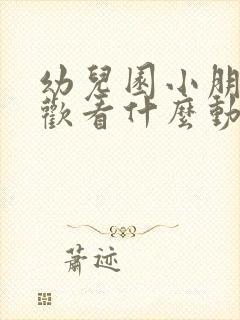 幼兒園小朋
歡看什麼動
蕭迹